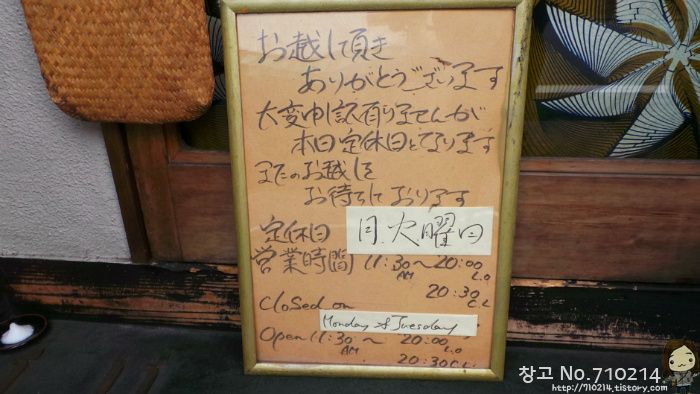 お越し頂き
ありがとうございます
大変申し訳有りませんが
本日定休日となります
またのお越しを
お待ちしております
定休日 月.火曜日
営業時間 11:30～20:00
AM L.O
20:30
C.L
Closed on
Monday & Tuesday
Open 11:30～20:00
AM L.O
20:30 C.L.
창고 No.710214
http://710214.tistory.com